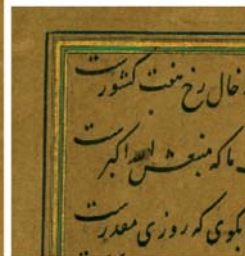 خال رخ هفت کشورست
ما که منبعش الله اکبرست
بگوی که روزی مقدرست